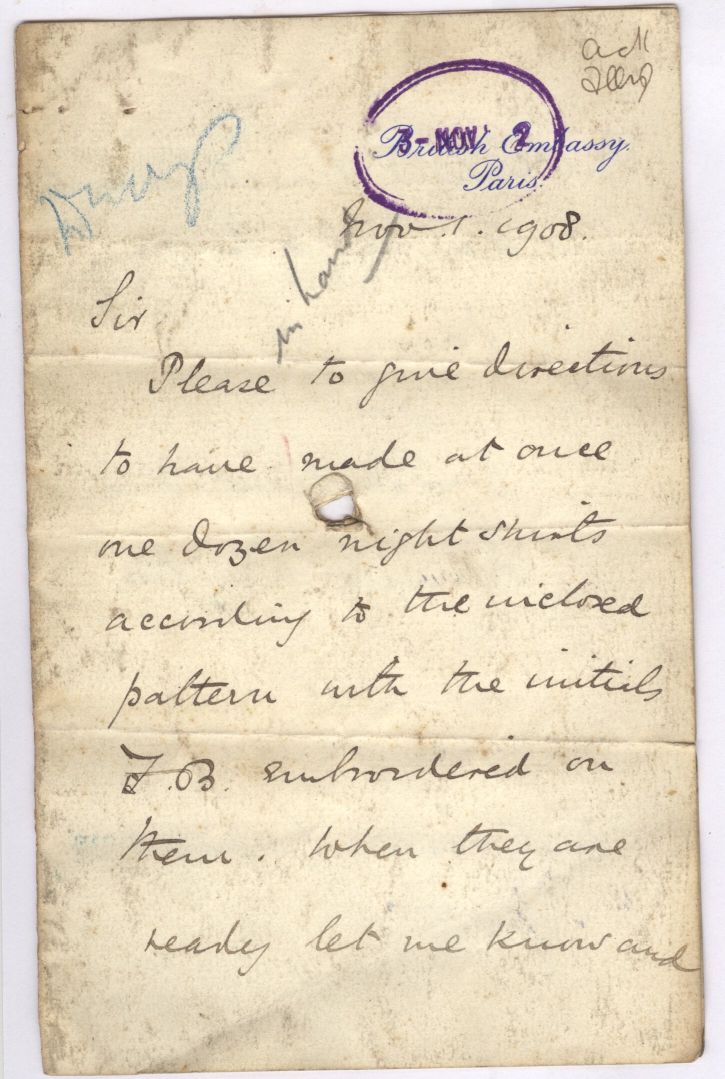 ack
3-NOV 2
British Embassy.
Paris.
Nov. 1. 1908.
in hand
Sir
Please to give directions
to have made at once
one dozen night shirts
according to the inclosed
pattern with the initials
F.B. embroidered on
them. When they are
ready let me know and